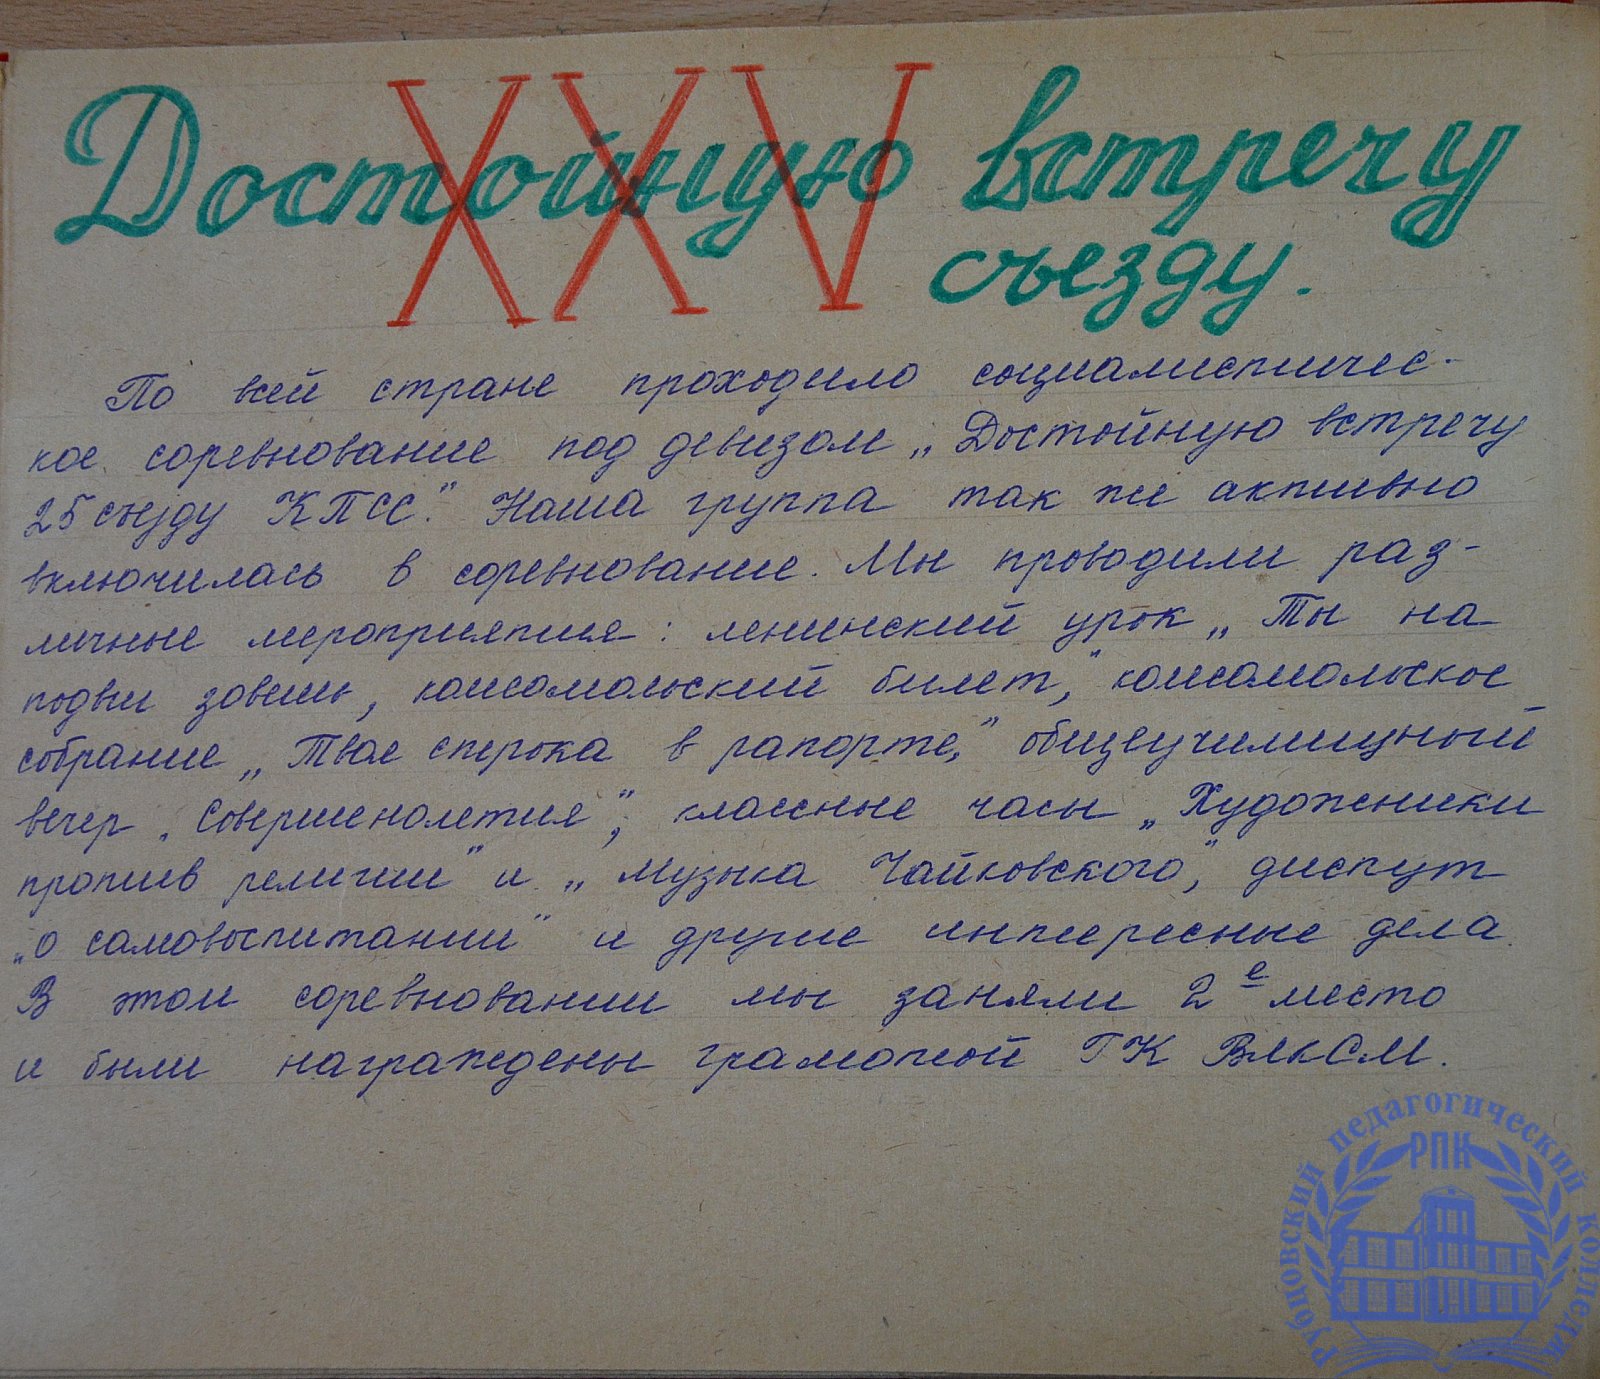 Достойную встречу
XXV
съезду.
По всей стране проходило социалистичес-
кое соревнование под девизом „Достойную встречу
25 съезду КПСС". Наша группа так же активно
включилась в соревнование. Мы проводили раз-
личные мероприятия: ленинский урок „Ты на
подви зовешь, комсомольский билет", комсомольское
собрание „Твоя строка в рапорте", общеучилищный
вечер „Совершенолетия", классные часы „Художники
против религии" и „Музыка Чайковского", диспут
„о самовоспитании" и другие интересные дела.
В этом соревновании мы заняли 2е место
и были награждены грамотой ГК ВЛКСМ.
Рубцовский педагогический колледж
РПК